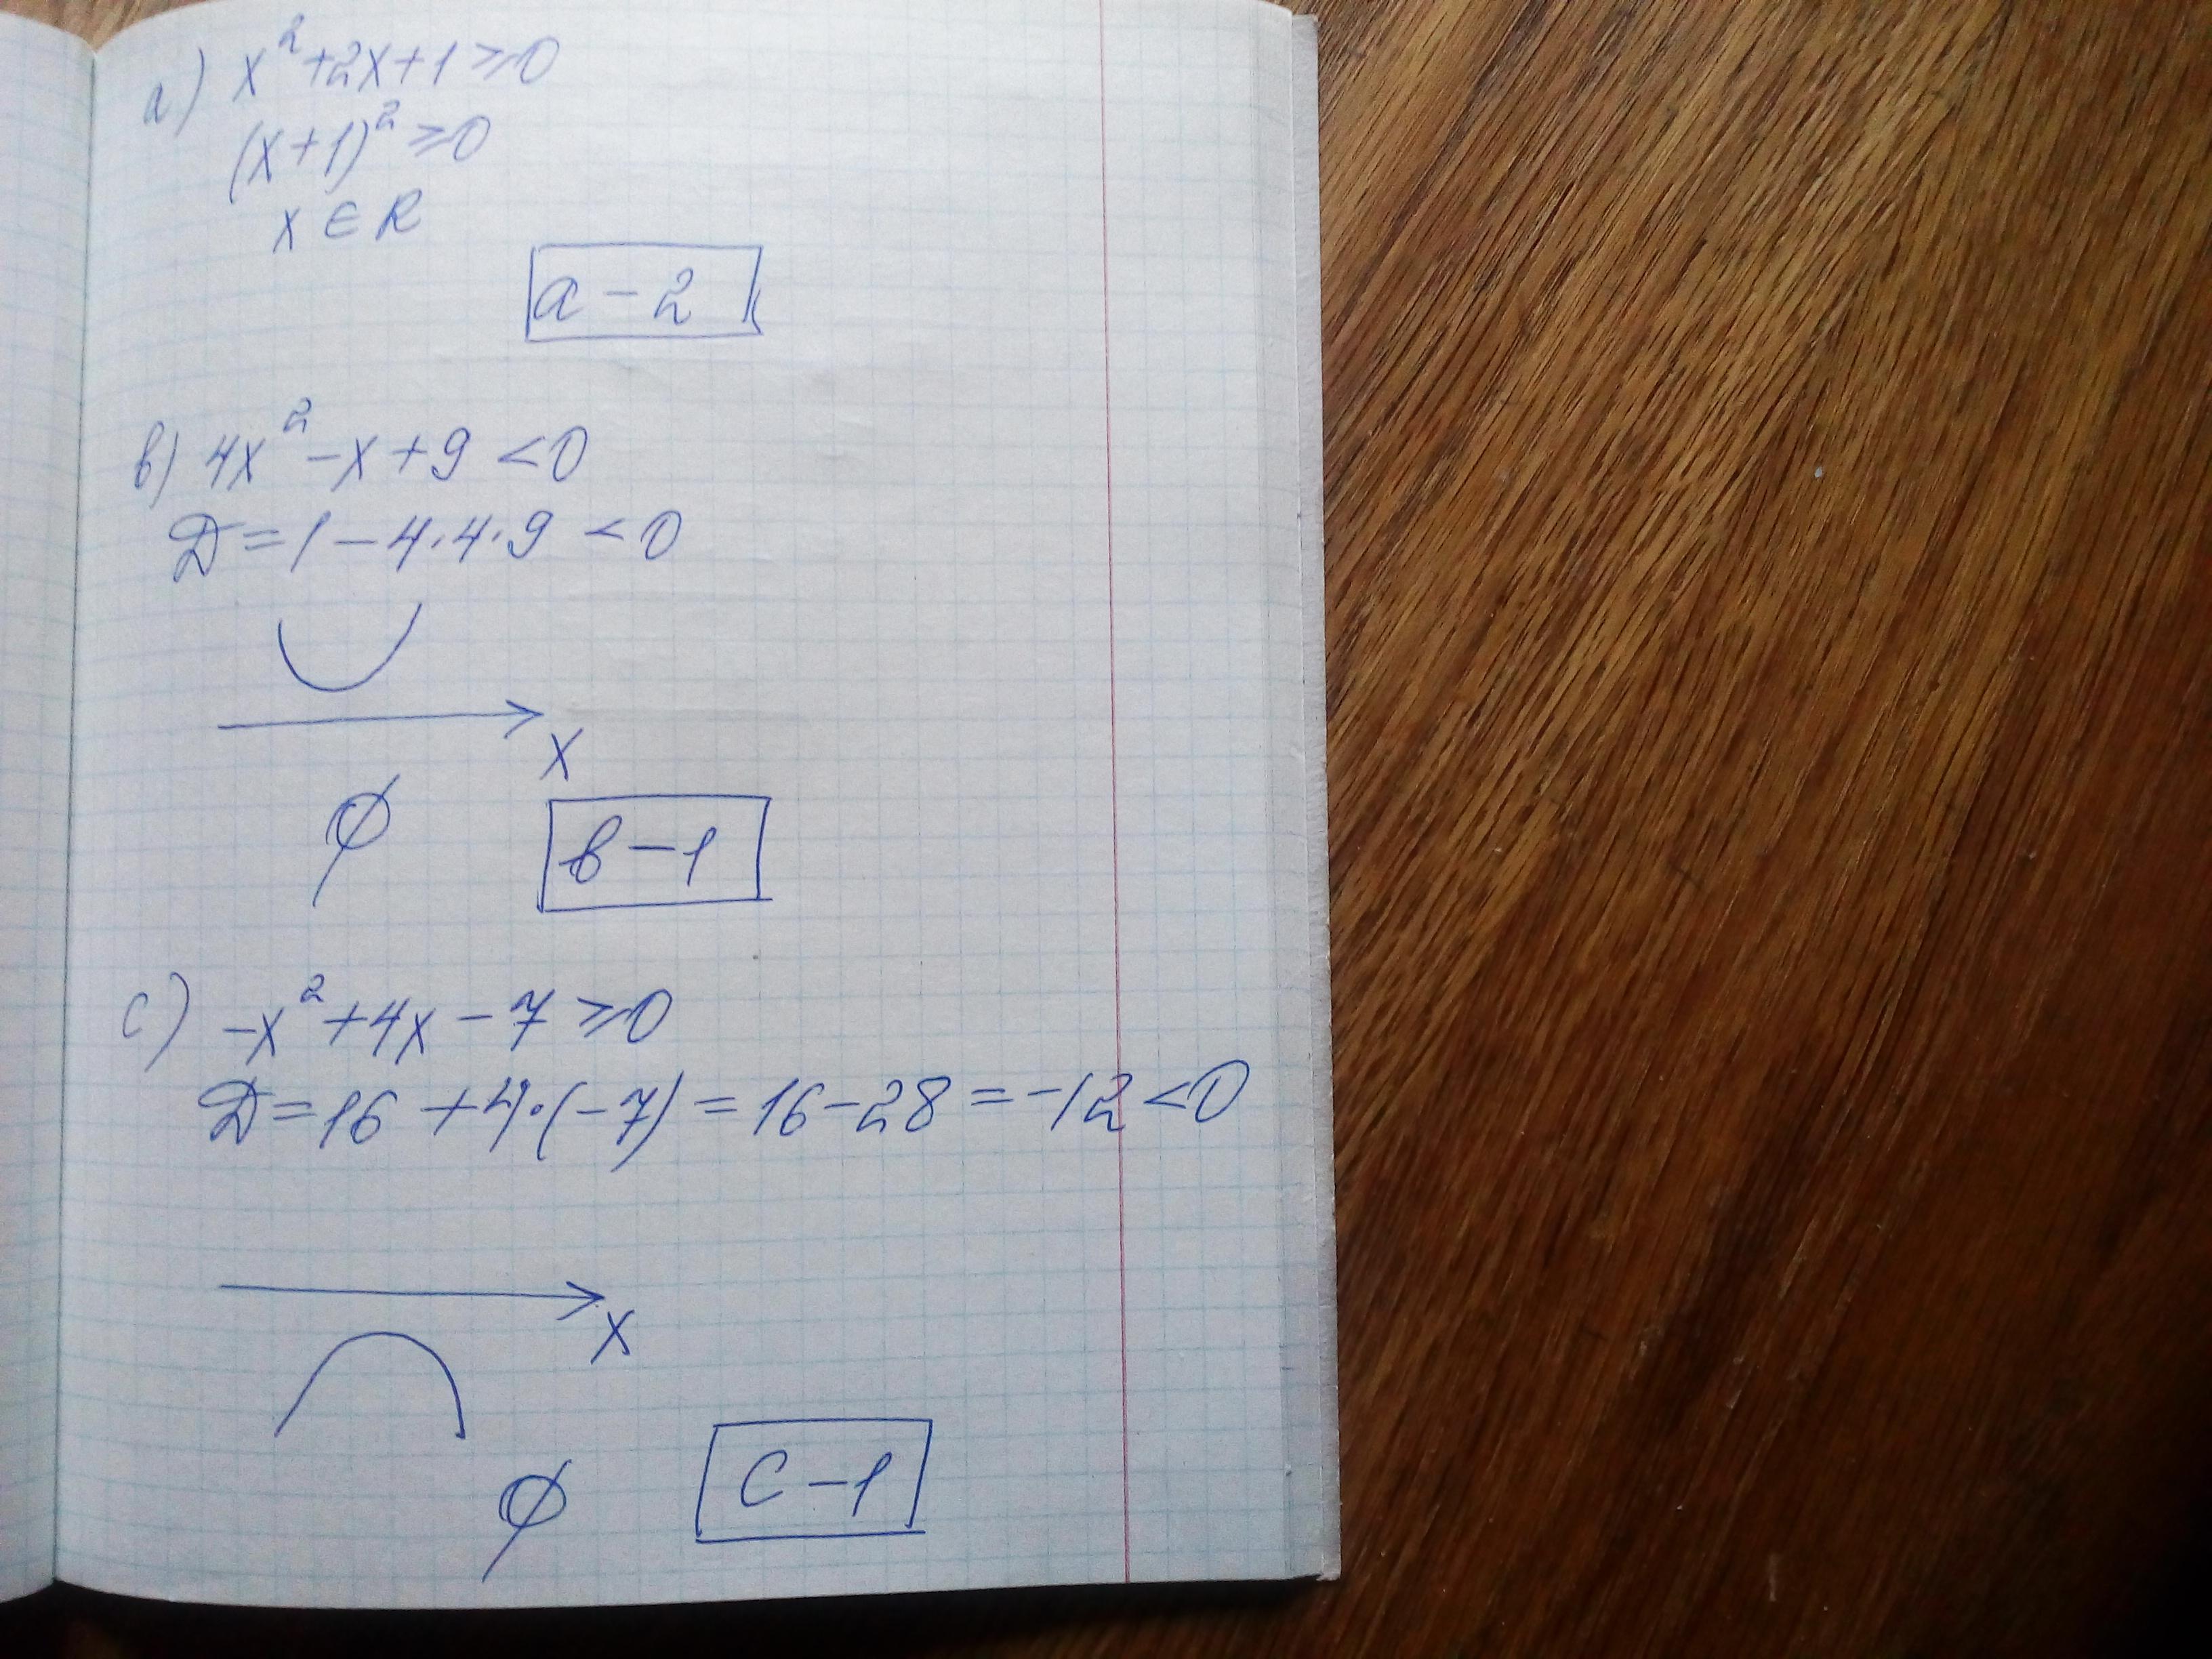 a) x²+2x+1≥0
(x+1)²≥0
x∈R
a-2
b) 4x²-x+9<0
D=1-4·4·9<0
x
∅
b-1
c) -x²+4x-7≥0
D=16+4·(-7)=16-28=-12<0
x
∅
c-1